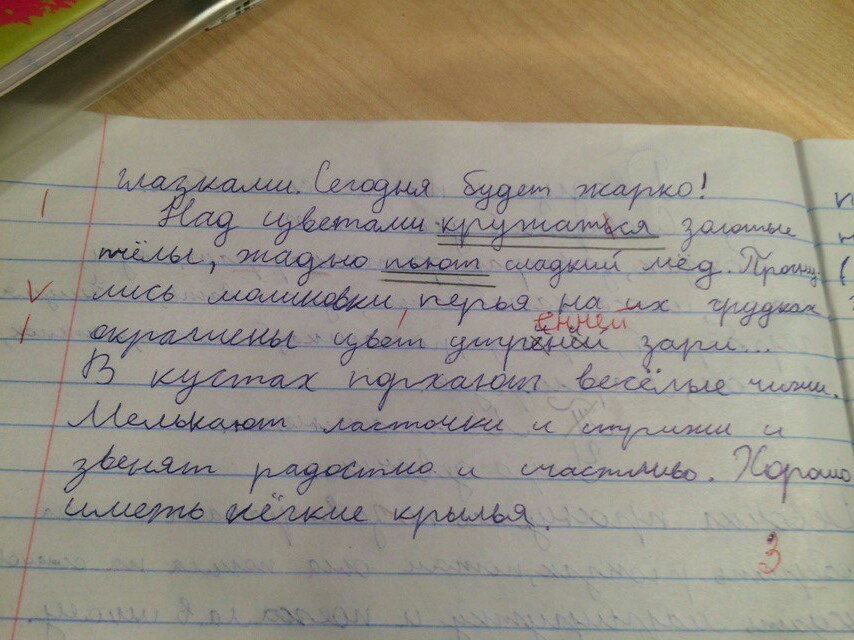 глазками. Сегодня будет жарко!
Над цветами кружаться золотые
пчёлы, жадно пьют сладкий мёд. Просну-
лись малиновки, перья на их грудках
енней
окрашены цвет утрнней зари...
В кустах порхают весёлые чижи.
Мелькают ласточки и стрижи и
звенят радостно и счастливо. Хорошо
иметь лёгкие крылья.
3